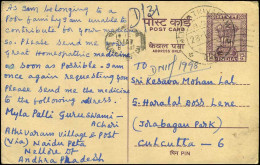 As I am belonging to a
poor family I am unable to
contribute for your medicine
So please send me the
Great Homoeopathic medicine
as soon as Possible. I am
once again requesting you
Please send me the medicine
to the following address.
Myla Palli Guruswami -
Achari
Athivaram village & Post
(Via) Naidu Peta
Nellore Dt
Andhra Pradesh
131
पोस्ट कार्ड
POST CARD
केवल पता
ADDRESS ONLY
To
Sri Kesava Mohan Lal
5. Haralal Doss Lane
(Jorabagan Park)
Calcutta - 6